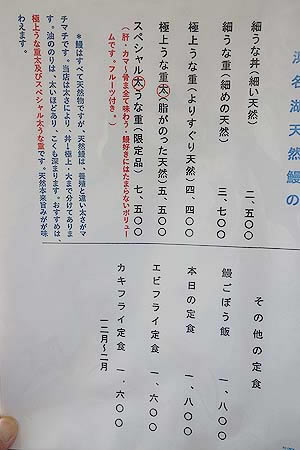 浜名湖天然鰻の
細うな丼(細い天然) 二、五〇〇
細うな重(細めの天然) 三、七〇〇
極上うな重(よりすぐり天然)四、四〇〇
極上うな重太(脂がのった天然)五、五〇〇
スペシャル太うな重(限定品)七、五〇〇
(肝・カマ・骨まで全て味わう・鰻好きにはたまらないボリュー
ムです。フルーツ付き。)
*鰻はすべて天然物ですが、天然鰻は、養殖と違い太さがマ
チマチです。当店は太さにより、丼・極上・太まで分けてありま
す。油ののりは、太いほどあり、こくも深まります。おすすめは
極上うな重太及びスペシャル太うな重です。天然本来旨みが味
わえます。
その他の定食
鰻ごぼう飯 一、八〇〇
本日の定食 一、八〇〇
エビフライ定食 一、六〇〇
カキフライ定食 一、六〇〇
一二月〜二月